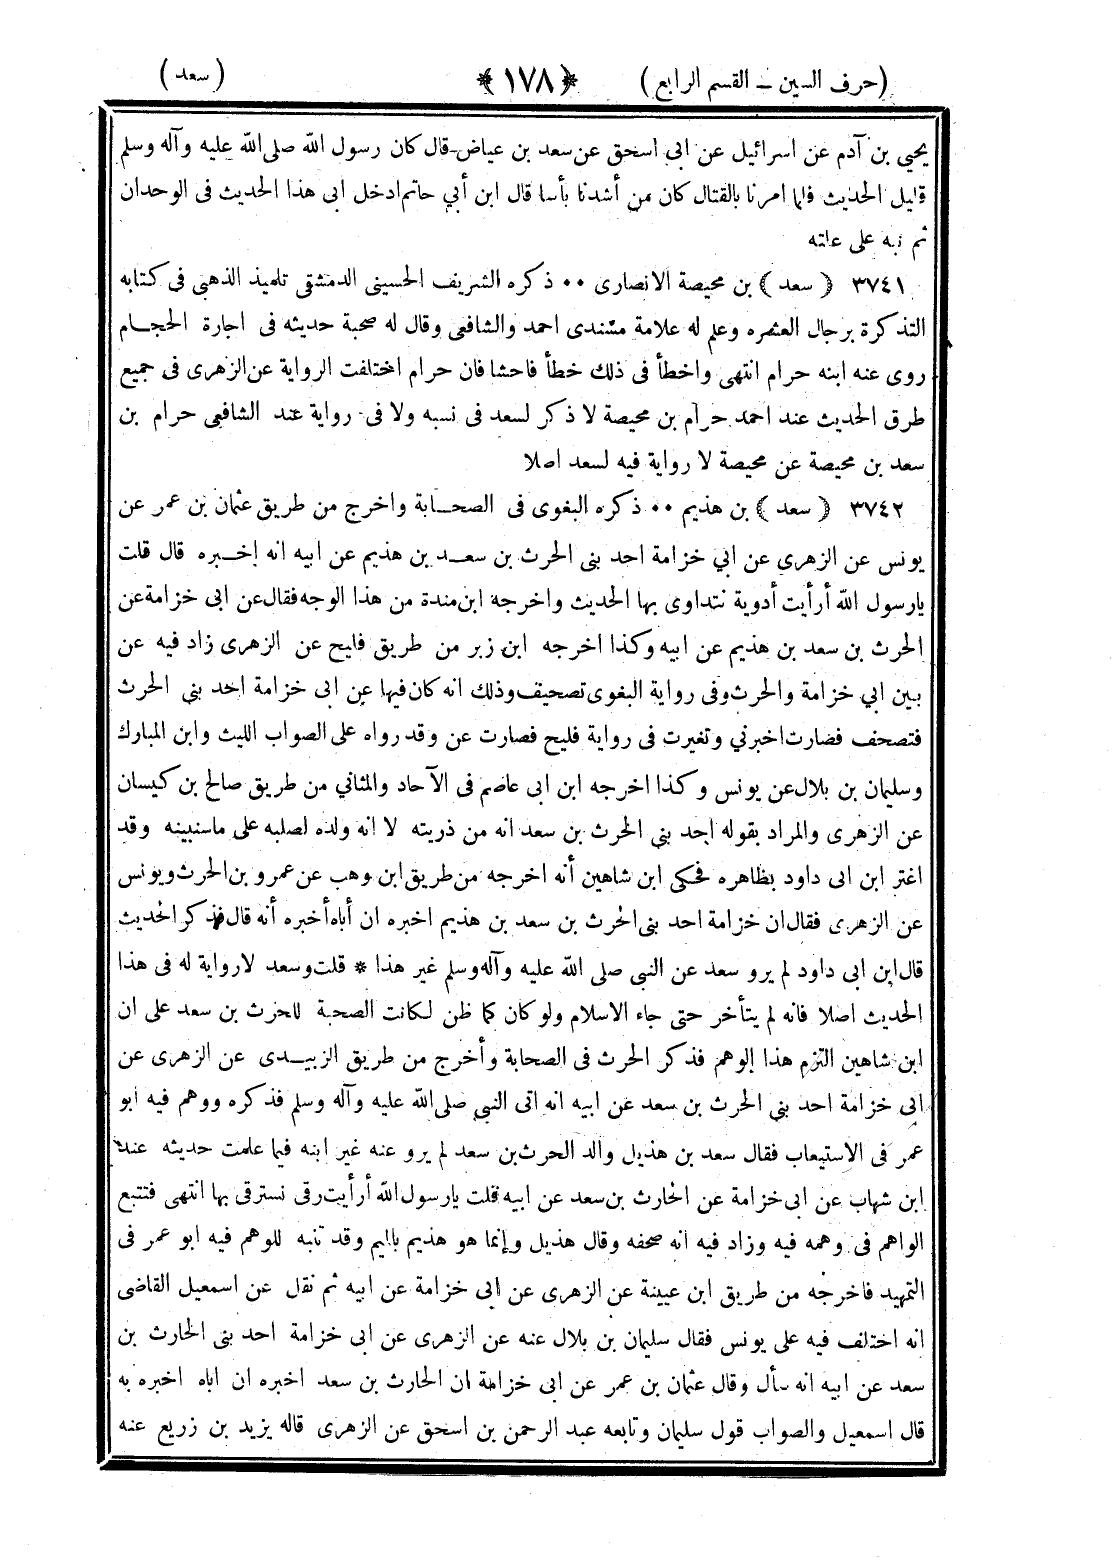 (حرف السين ــ القسم الرابع) ﴿١٧٨﴾ (سعد)
يحيى بن آدم عن اسرائيل عن ابي اسحق عن سعد بن عياض قال كان رسول الله صلى الله عليه وآله وسلم
قليل الحديث فلما امرنا بالقتال كان من أشدنا بأسا قال ابن أبي حاتم ادخل ابى هذا الحديث فى الوحدان
ثم نبه على علته
٣٧٤١ ﴿ سعد ﴾ بن محيصة الانصارى ٠٠ ذكره الشريف الحسيني الدمشقى تلميذ الذهبي فى كتابه
التذكرة برجال العشره وعلم له علامة مسندى احمد والشافعى وقال له صحبة حديثه فى اجارة الحجام
روى عنه ابنه حرام انتهى واخطأ فى ذلك خطأ فاحشا فان حرام اختلفت الرواية عن الزهرى فى جميع
طرق الحديث عند احمد حرام بن محيصة لا ذكر لسعد فى نسبه ولا فى رواية عند الشافعى حرام بن
سعد بن محيصة عن محيصة لا رواية فيه لسعد اصلا
٣٧٤٢ ﴿ سعد ﴾ بن هذيم ٠٠ ذكره البغوى فى الصحابة واخرج من طريق عثمان بن عمر عن
يونس عن الزهرى عن ابي خزامة احد بنى الحرث بن سعد بن هذيم عن ابيه انه اخبره قال قلت
يارسول الله أرأيت أدوية نتداوى بها الحديث واخرجه ابن مندة من هذا الوجه فقال عن ابى خزامة عن
الحرث بن سعد بن هذيم عن ابيه وكذا اخرجه ابن زبر من طريق فليح عن الزهرى زاد فيه عن
بين ابي خزامة والحرث وفى رواية البغوى تصحيف وذلك انه كان فيها عن ابى خزامة احد بنى الحرث
فتصحف فصارت اخبرني وتغيرت فى رواية فليح فصارت عن وقد رواه على الصواب الليث وابن المبارك
وسليمان بن بلال عن يونس وكذا اخرجه ابن ابى عاصم فى الآحاد والمثاني من طريق صالح بن كيسان
عن الزهرى والمراد بقوله احد بنى الحرث بن سعد انه من ذريته لا انه ولده لصلبه على ماسنبينه وقد
اغتر ابن ابى داود بظاهره فحكى ابن شاهين أنه اخرجه من طريق ابن وهب عن عمرو بن الحرث ويونس
عن الزهرى فقال ان خزامة احد بنى الحرث بن سعد بن هذيم اخبره ان أباه أخبره أنه قال فذكر الحديث
قال ابن ابى داود لم يرو سعد عن النبي صلى الله عليه وآله وسلم غير هذا * قلت وسعد لارواية له فى هذا
الحديث اصلا فانه لم يتأخر حتى جاء الاسلام ولو كان كما ظن لكانت الصحبة للحرث بن سعد على ان
ابن شاهين التزم هذا الوهم فذكر الحرث فى الصحابة وأخرج من طريق الزبيدى عن الزهرى عن
ابى خزامة احد بنى الحرث بن سعد عن ابيه انه اتى النبي صلى الله عليه وآله وسلم فذكره ووهم فيه ابو
عمر فى الاستيعاب فقال سعد بن هذيل والد الحرث بن سعد لم يرو عنه غير ابنه فيما علمت حديثه عند
ابن شهاب عن ابى خزامة عن الحارث بن سعد عن ابيه قلت يارسول الله أرأيت رقى نسترقى بها انتهى فتتبع
الواهم فى وهمه فيه وزاد فيه انه صحفه وقال هذيل وإنما هو هذيم بالميم وقد تنبه للوهم فيه ابو عمر فى
التمهيد فاخرجه من طريق ابن عيينة عن الزهرى عن ابى خزامة عن ابيه ثم نقل عن اسمعيل القاضى
انه اختلف فيه على يونس فقال سليمان بن بلال عنه عن الزهرى عن ابى خزامة احد بنى الحارث بن
سعد عن ابيه انه سأل وقال عثمان بن عمر عن ابى خزامة ان الحارث بن سعد اخبره ان اباه اخبره به
قال اسمعيل والصواب قول سليمان وتابعه عبد الرحمن بن اسحق عن الزهرى قاله يزيد بن زريع عنه